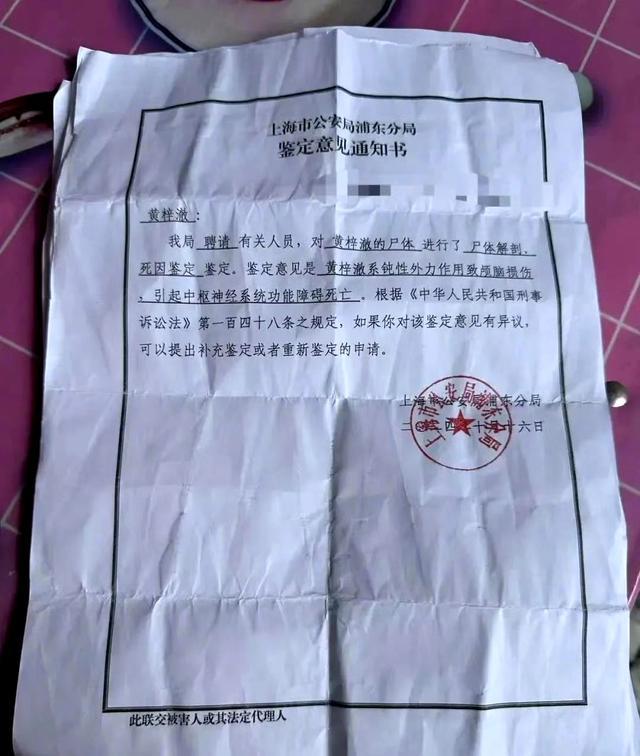 上海市公安局浦东分局
鉴定意见通知书
黄梓澈：
我局 聘请 有关人员，对 黄梓澈的尸体 进行了 尸体解剖、
死因鉴定 鉴定。鉴定意见是 黄梓澈系钝性外力作用致颅脑损伤
，引起中枢神经系统功能障碍死亡 。根据《中华人民共和国刑事
诉讼法》第一百四十八条之规定，如果你对该鉴定意见有异议，
可以提出补充鉴定或者重新鉴定的申请。
上海市公安局浦东分局
二〇二四 十 十六日
此联交被害人或其法定代理人